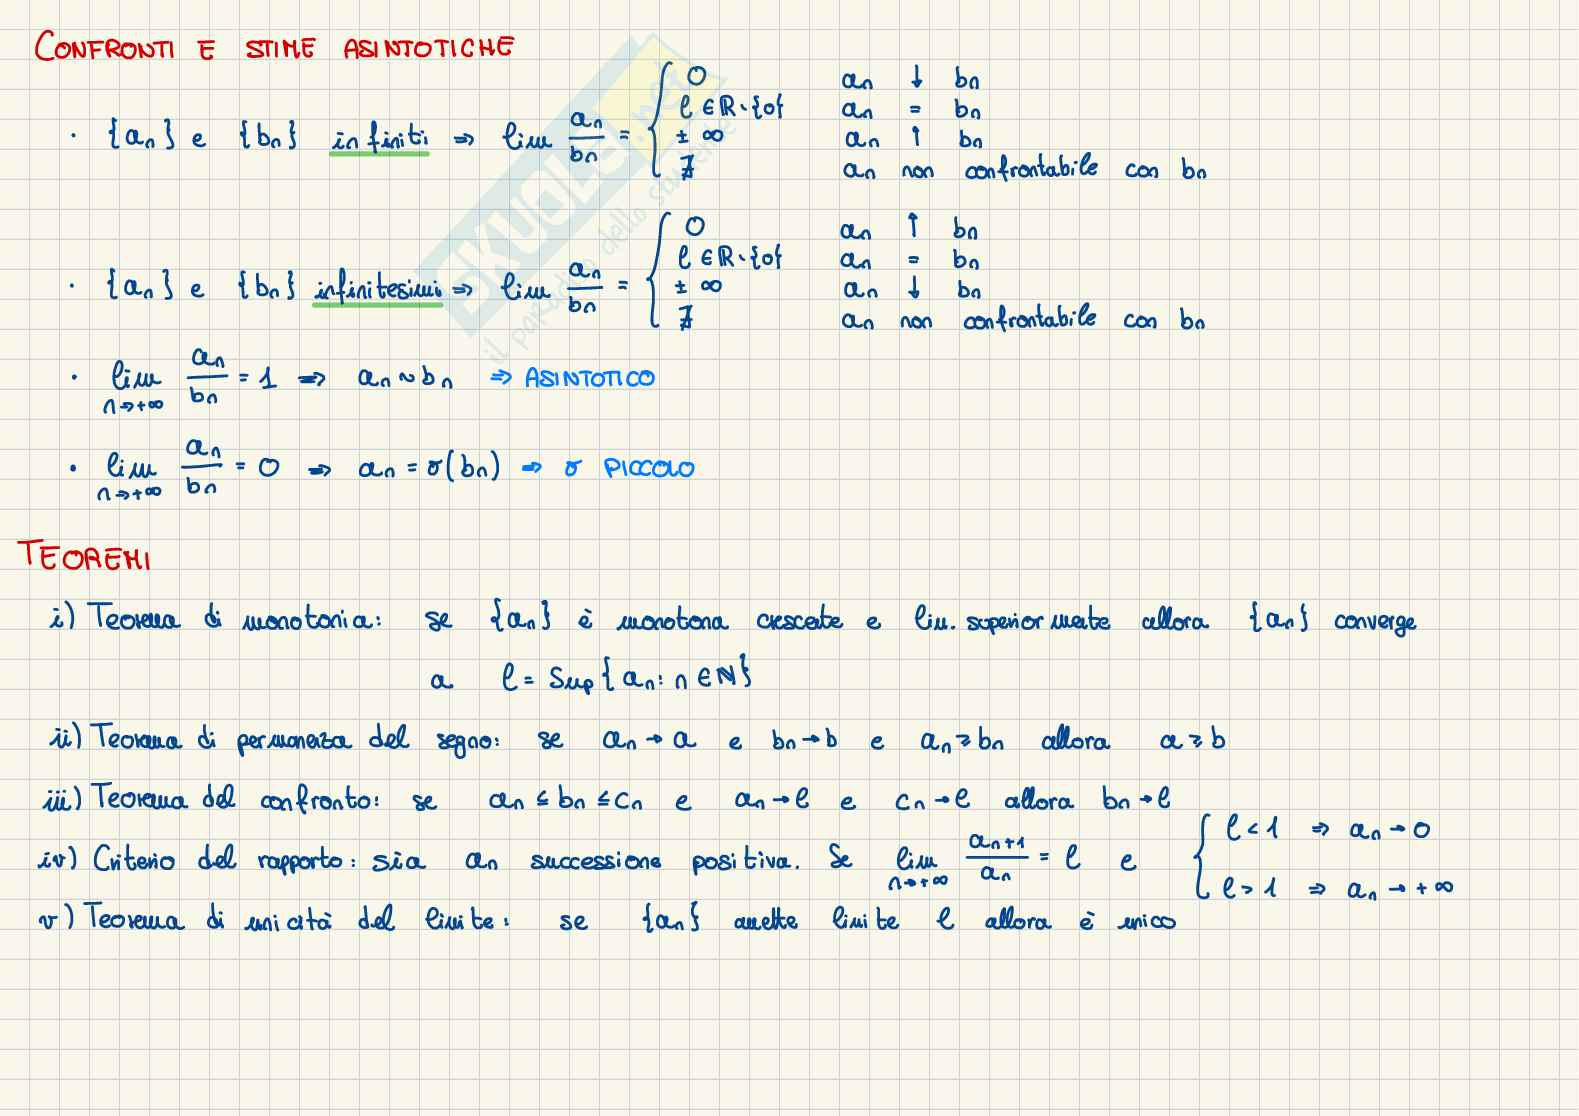 CONFRONTI E STIME ASINTOTICHE
· {an} e {bn} infiniti ⇒ lim an/bn = { 0 an ↓ bn
ℓ ∈ ℝ∖{0} an = bn
± ∞ an ↑ bn
∄ an non confrontabile con bn
· {an} e {bn} infinitesimi ⇒ lim an/bn = { 0 an ↑ bn
ℓ ∈ ℝ∖{0} an = bn
± ∞ an ↓ bn
∄ an non confrontabile con bn
· lim n→+∞ an/bn = 1 ⇒ an ~ bn ⇒ ASINTOTICO
· lim n→+∞ an/bn = 0 ⇒ an = o(bn) ⇒ o PICCOLO
TEOREMI
i) Teorema di monotonia: se {an} è monotona crescente e lim. superiormente allora {an} converge
a ℓ = Sup{an: n ∈ ℕ}
ii) Teorema di permanenza del segno: se an → a e bn → b e an ≥ bn allora a ≥ b
iii) Teorema del confronto: se an ≤ bn ≤ cn e an → ℓ e cn → ℓ allora bn → ℓ
iv) Criterio del rapporto: sia an successione positiva. Se lim n→+∞ an+1/an = ℓ e { ℓ < 1 ⇒ an → 0
ℓ > 1 ⇒ an → +∞
v) Teorema di unicità del limite: se {an} ammette limite ℓ allora è unico
SKUOLA.net
il paradiso dello studente